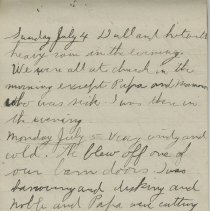 Sunday July 4 Dull and hot and
heavy rain in the evening.
We were all at church in the
morning except Papa and
who was sick I was there in
the evening
Monday July 5 Very windy and
cold. It blew off one of
our barn doors I was
harrowing and disking and
noble and Papa were cutting